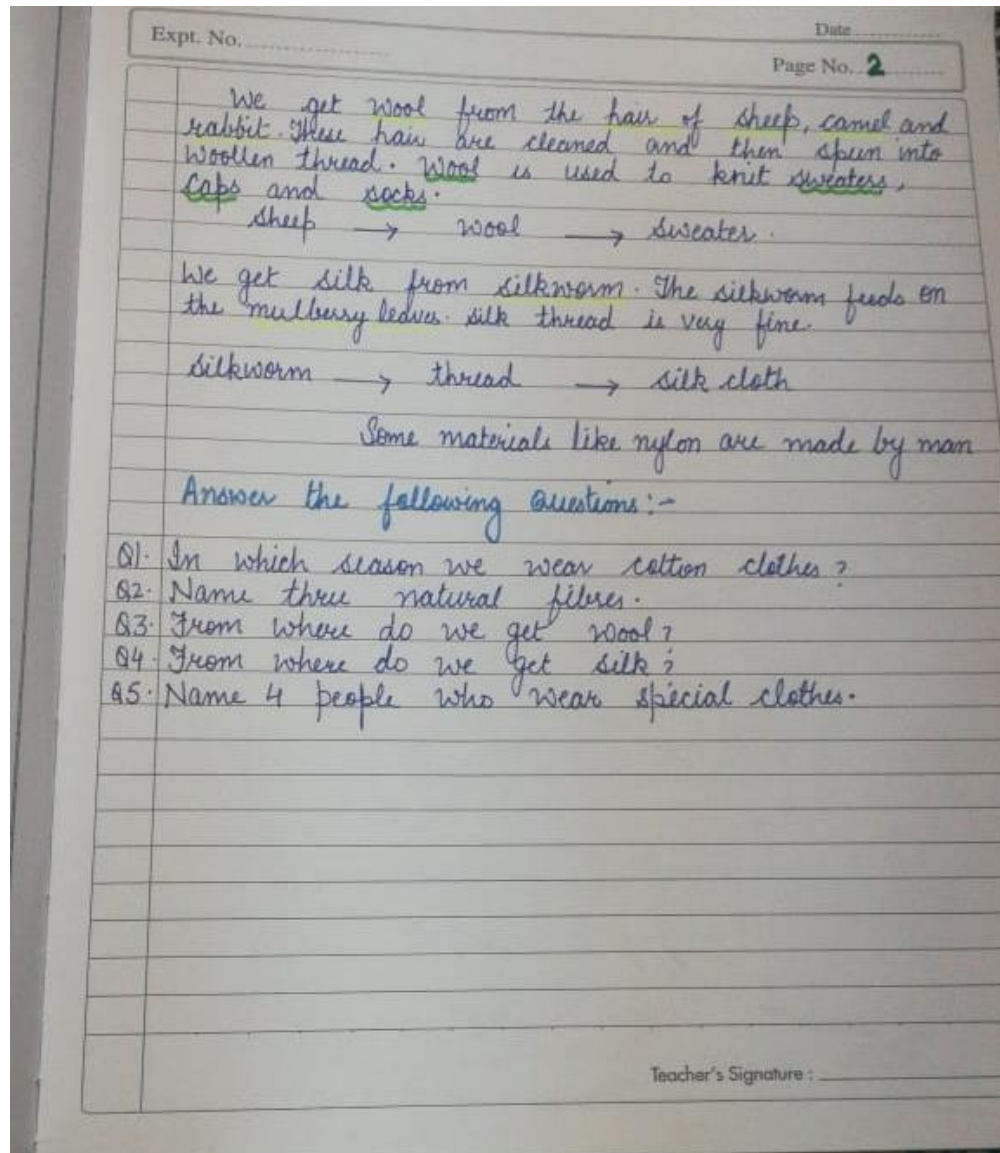 Expt. No.
Date
Page No. 2
We get wool from the hair of sheep, camel and
rabbit. These hair are cleaned and then spun into
woollen thread. Wool is used to knit sweaters,
caps and socks.
sheep → wool → sweater.
We get silk from silkworm. The silkworm feeds on
the mulberry leaves. silk thread is very fine.
silkworm → thread → silk cloth
Some materials like nylon are made by man
Answer the following Questions:-
Q1. In which season we wear cottion clothes?
Q2. Name three natural fibres.
Q3. From where do we get wool?
Q4. From where do we get silk?
Q5. Name 4 people who wear special clothes.
Teacher's Signature :